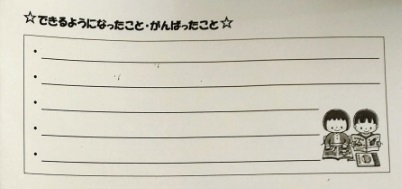 ☆できるようになったこと・がんばったこと☆
・
・
・
・
・